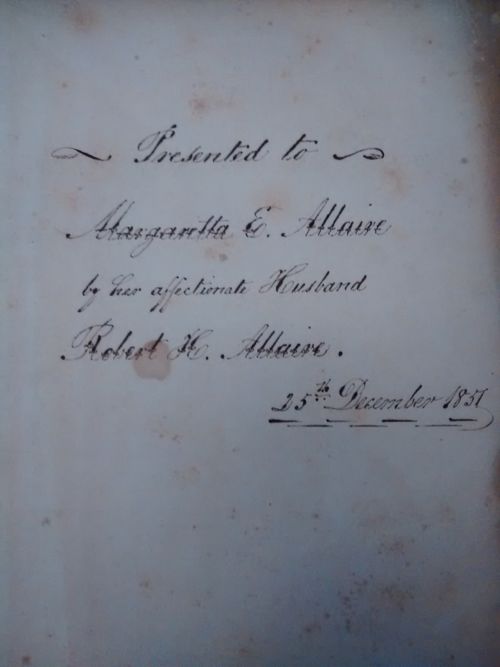 Presented to
Margaretta E. Allaire
by her affectionate Husband
Robert H. Allaire.
25th December 1851